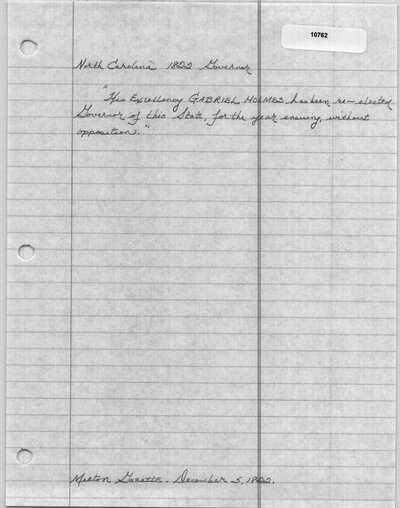 10762
North Carolina 1822 Governor
"His Excellency GABRIEL HOLMES has been re-elected
Governor of this State, for the year ensuing, without
opposition."
Gazette. December 5, 1822.